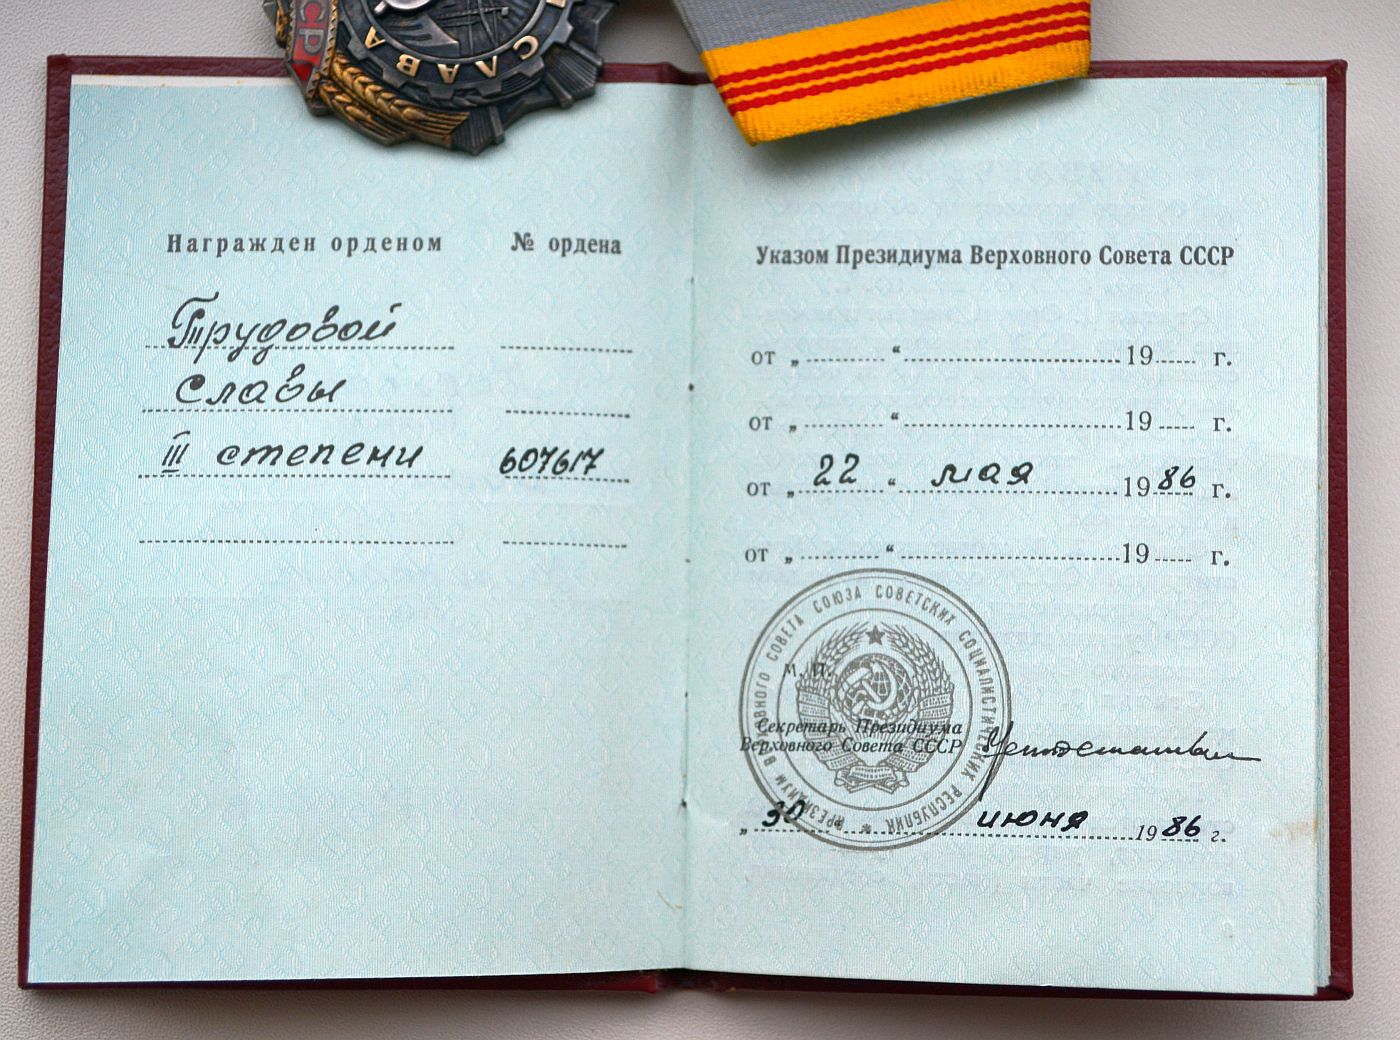 СР
СЛАВА
Награжден орденом № ордена
Трудовой
славы
III степени 607617
Указом Президиума Верховного Совета СССР
от „ “ 19 г.
от „ “ 19 г.
от „ 22 “ мая 1986 г.
от „ “ 19 г.
ПРЕЗИДИУМ ВЕРХОВНОГО СОВЕТА СОЮЗА СОВЕТСКИХ СОЦИАЛИСТИЧЕСКИХ РЕСПУБЛИК
М. П.
Секретарь Президиума
Верховного Совета СССР
„ 30 июня 1986 г.